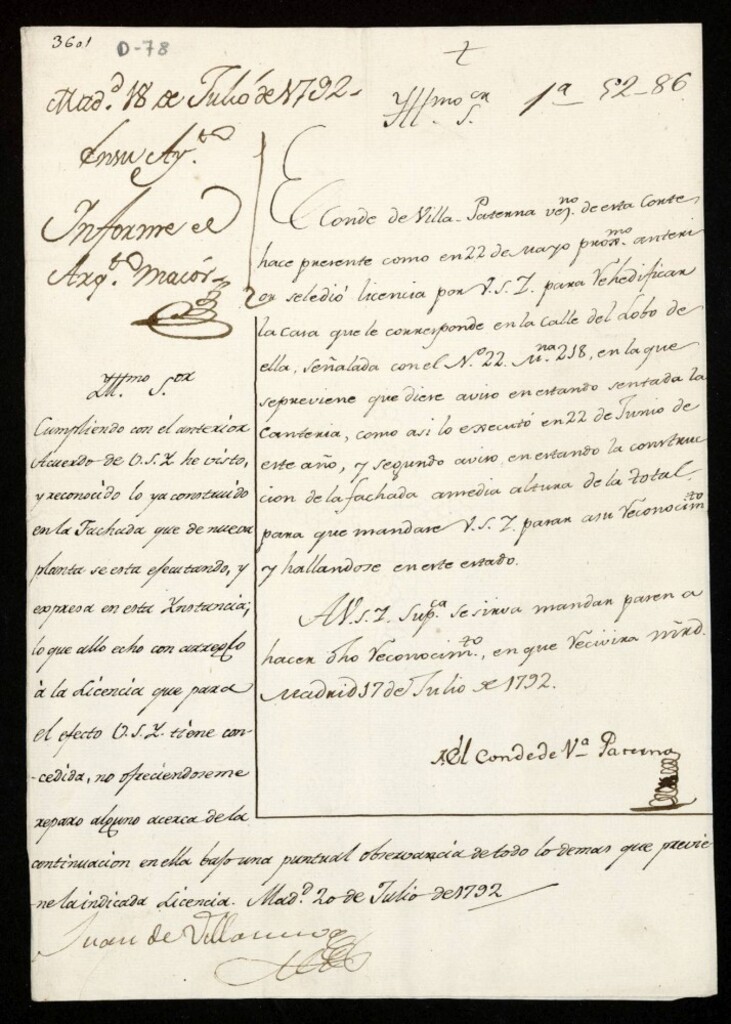 3601
D-78
+
Mad.d 18 de Julio de 1792-
Yll.mo S.or
1a 52-86
En su Ay.to
Informe el
Arq.to Maior
El Conde de Villa-Paterna vez.no de esta Corte,
hace presente como en 22 de Mayo prox.mo anteri
or se le dió licencia por V.S.I. para Rehedificar
la casa que le corresponde en la Calle del Lobo de
ella, señalada con el N.o 22. M.na 218, en la que
se previene que diere aviso en estando sentada la
Canteria, como asi lo executó en 22 de Junio de
este año, y segundo aviso, en estando la construc
cion de la fachada a media altura de la total,
para que mandare V.S.I. pasar a su Reconocim.to
y hallandose en este estado.
A V.S.I. Sup.ca se sirva mandar pasen a
hacer dho Reconocim.to, en que Recivira mrd.
Madrid 17 de Julio de 1792.
El Conde de V.a Paterna
Yll.mo S.or
Cumpliendo con el anterior
Acuerdo de V.S.Y. he visto,
y reconocido lo ya construido
en la Fachada que de nueva
planta se esta efecutando, y
expresa en esta Ynstancia;
lo que allo echo con arreglo
à la Licencia que para
el efecto V.S.Y. tiene con-
-cedida, no ofreciendoseme
reparo alguno acerca de la
continuacion en ella bajo una puntual observancia de todo lo demas que previe
ne la indicada Licencia. Mad.d 20 de Julio de 1792
Juan de Villanueva